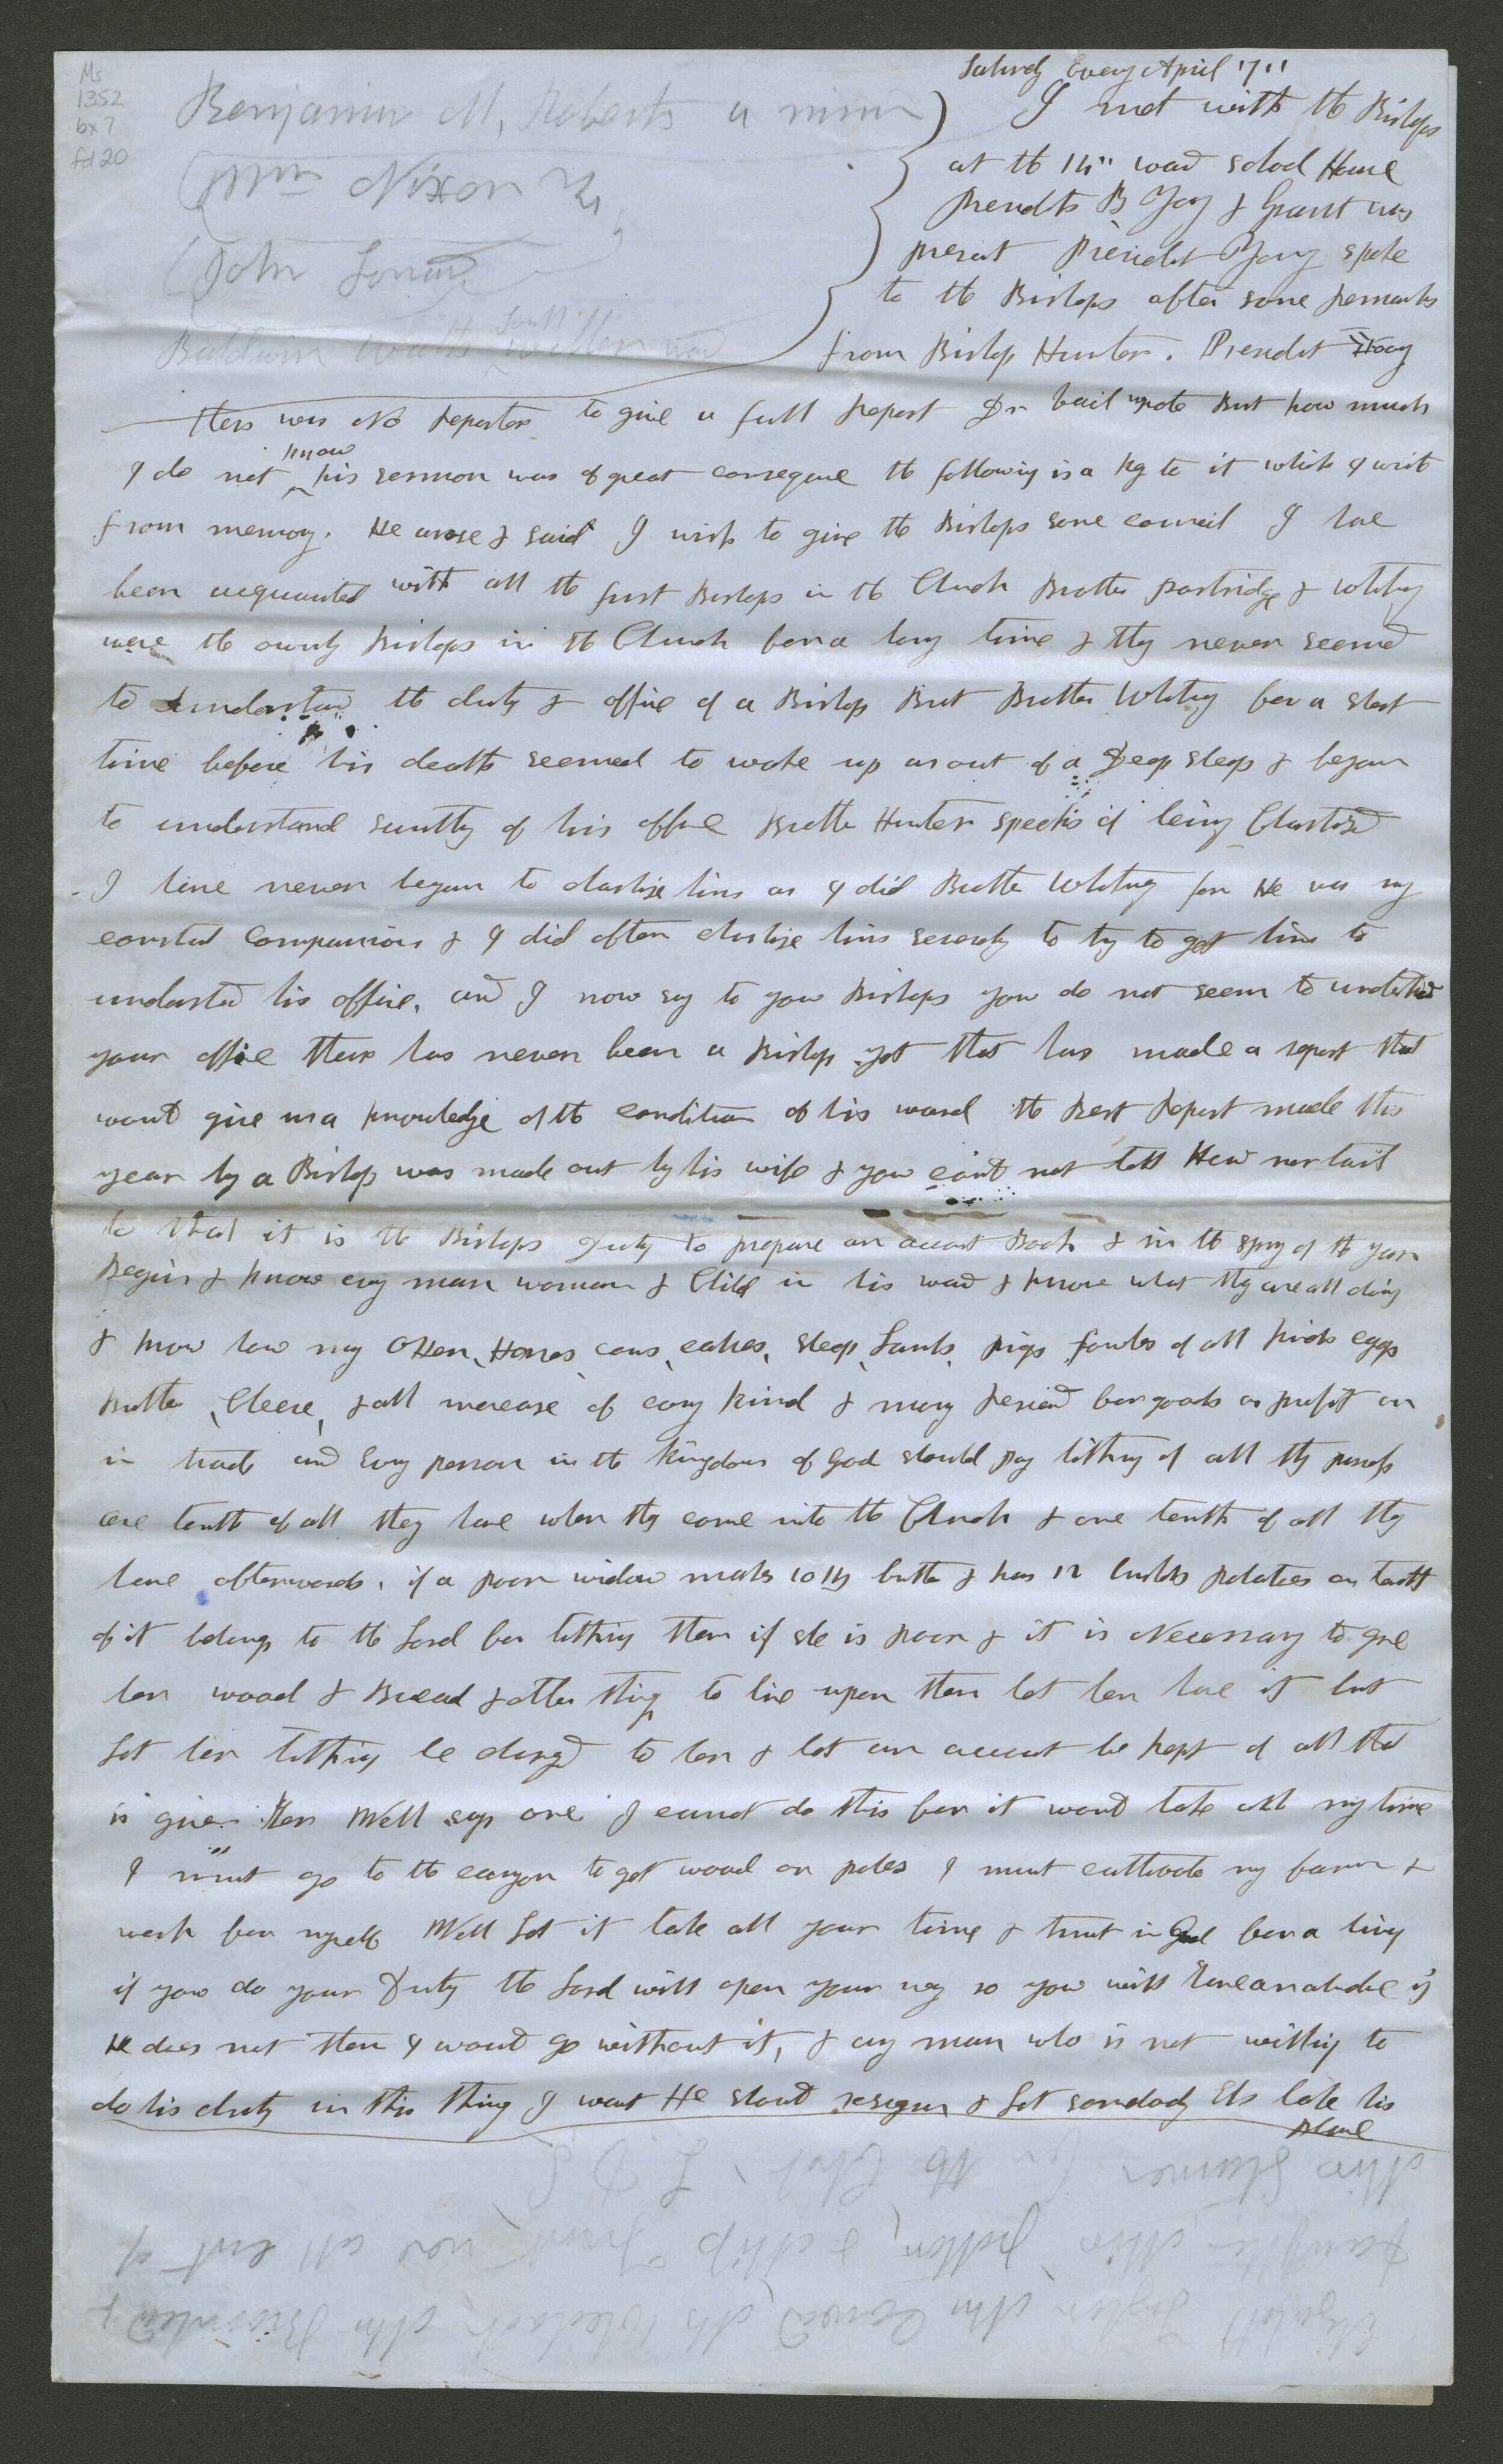 Ms
1352
bx 7
fd 20
Benjamin M, Roberts a minor
Nixon
John
Baldwin Watts
Saturdy Eveng April 7"
I met with the Bishops
at the 14" ward School House
Presdts B Yog & Grant was
present President Yog spoke
to the Bishops after some remarks
from Bishop Hunter. President Yog
thers was No Reporter to give a full Report Dr bail wrote But how much
I do not know his sermon was of great conseque the following is a kg to it which I write
from memoy. He arose & said I wish to give the Bishops some council I have
been acquainted with all the first Bishops in the Church Brother partridge & Whitny
were the ownly Bishops in the Church for a long time & they never seemed
to understand the duty & office of a Bishop But Brother Whitny for a short
time before his death seemed to wake up as out of a Deep sleep & began
to understand sumthing of his office Brothe Hunter speeks of being Chastised
I have never began to chastize him as I did Brothe Whitny for He was my
constut companion & I did often chastize him severely to try to get him to
understad his office. and I now say to you Bishops you do not seem to understand
your office there has never been a Bishop yet that has made a report that
would give us a knowledge of the condition of his ward the Best Report made this
year by a Bishop was made out by his wife & you cant not tell Head nor tail
to that it is the Bishops Duty to prepare an accout Book & in the spring of the year
Begin & know evry man woman & Child in his ward & know what they are all doing
& know how many Oxen, Horses cows, calves, sleep, Lambs, pigs fowls of all kinds eggs
Butter, Cheese, & all increase of evry kind & money received for goods or profit on
in trade and Evry person in the kingdom of God should pay tithing of all they possess
one tenth of all they have when they come into the Church & one tenth of all they
have afterwards. if a poor widow makes 10 lbs butter & has 12 bushels potatoes one tenth
of it belongs to the Lord for tithing then if she is poor & it is Necessary to give
her wood & Bread & other things to live upon then let her have it but
Let her tithing be charged to her & let an account be kept of all that
is given Her Well says one I cannot do this for it would take all my time
I must go to the canyon to get wood or poles I must cultivate my farm &
work for myself Well Let it take all your time & trust in God for a living
if you do your Duty the Lord will open your way so you will have an abundance if
He does not then I would go without it, & any man who is not willing to
do his duty in this thing I want He should resign & Let somebody Els take his
place
for the
Mrs
Elizabeth